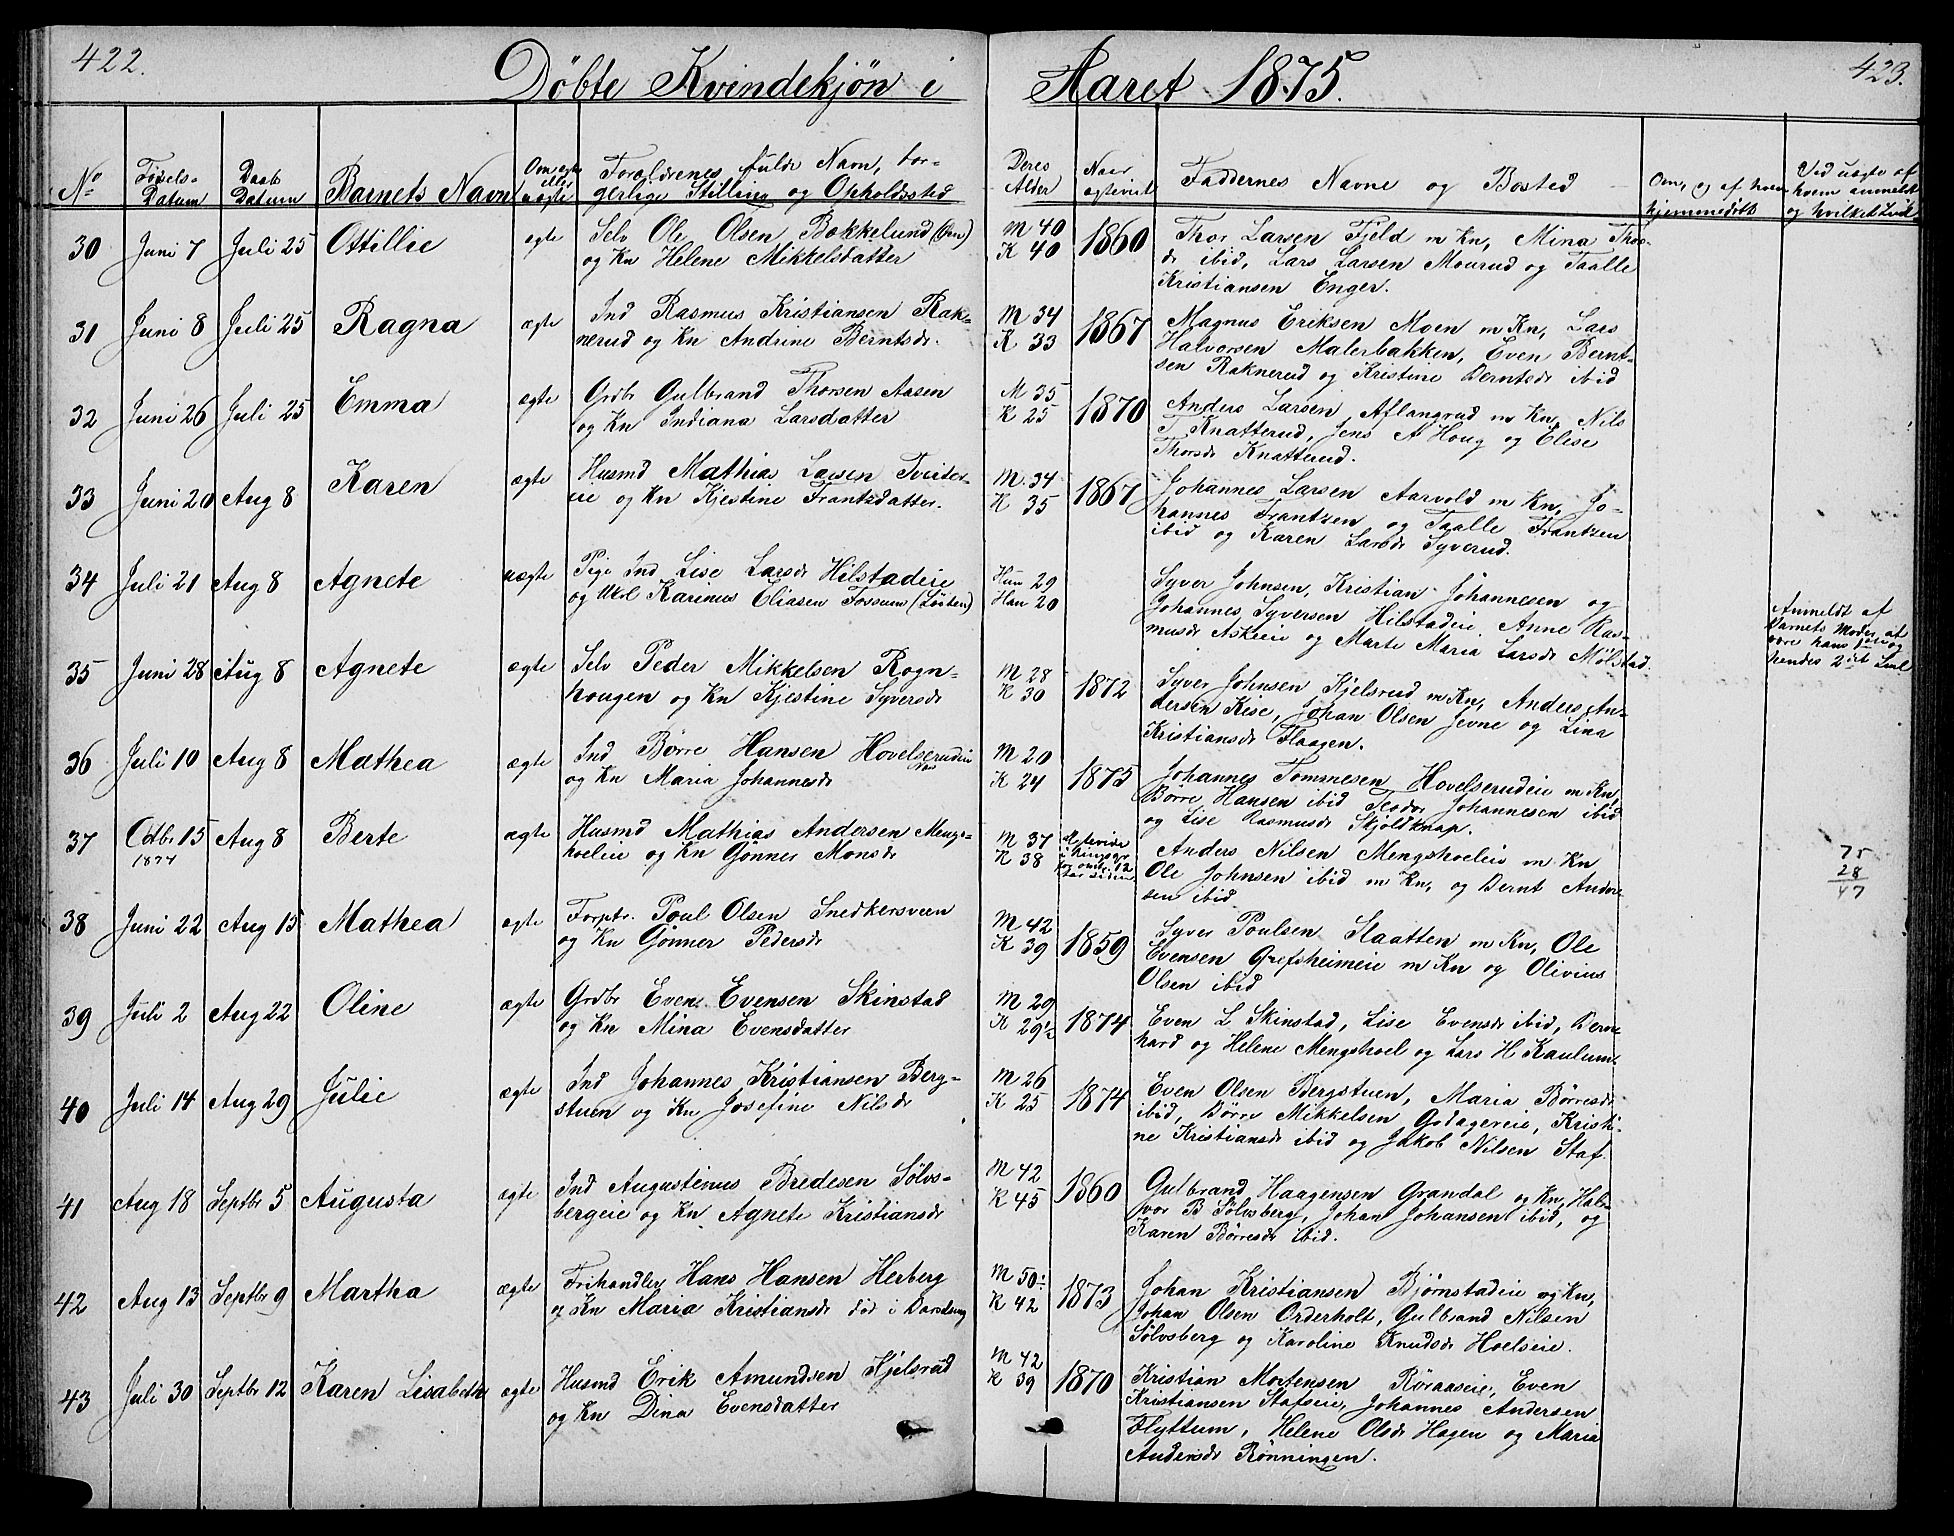 422.
Döbte Kvindekjøn i
Aaret 1875.
423.
No
Fødsels-
Datum
Daabs
Datum
Barnets Navn
Om ægte
eller
uægte
Forældrenes fulde Navn, bor-
gerlige Stilling og Opholdssted
Deres
Alder
Naar
ægteviet
Faddernes Navne og Bosted
Om, og af hvem
hjemmedöbt
Ved uægte af
hvem anmeldt
og hvilket Leie
30 Juni 7 Juli 25 Ottillie ægte Selv Ole Olsen Bakkelund
og Kn Helene Mikkelsdatter
M 40
K 40
1860
Thor Larsen Fjeld m Kn, Mina Thors-
dr ibid, Lars Larsen Mourud og Taalle
Kristiansen Enger.
31 Juni 8 Juli 25 Ragna ægte Ind Rasmus Kristiansen Rak-
nerud og Kn Andrine Berntsdr.
M 34
K 33
1867
Magnus Eriksen Moen m Kn, Lars
Halvorsen Malerbakken, Even Bernt-
sen Raknerud og Kristine Berntsdr ibid
32 Juni 26 Juli 25 Emma ægte Grdbr Gulbrand Thorsen Aasen
og Kn Indiana Larsdatter
M 35
K 25
1870
Anders Larsen Aflangrud m Kn, Nils
T Knatterud, Jens A Houg og Elise
Thorsdr Knatterud.
33 Juni 20 Aug 8 Karen ægte Husmd Mathias Larsen Tveter-
eie og Kn Kjestine Frantzdatter.
M 34
K 35
1867
Johannes Larsen Aarvold m Kn, Jo-
hannes Frantzen og Taalle Frantzen
ibid og Karen Larsdr Syverud.
34 Juli 21 Aug 8 Agnete uægte Pige Ind Lise Larsdr Hilstadeie
og Ukl Karinus Eliasen Fossum (Löiten)
Hun 29
Han 20
Syver Johnsen, Kristian Johannesen og
Johannes Syversen Hilstadeie, Anne Ras-
musdr Askeie og Marte Maria Larsdr Mølstad.
Anmeldt af
Barnets Moder at
være hans 1ste og
hendes 2det Leie
35 Juni 28 Aug 8 Agnete ægte Selv Peder Mikkelsen Rogn-
hougen og Kn Kjestine Syversdr
M 28
K 30
1872
Syver Johnsen Kjelsrud m Kn, Anders An-
dersen Kise, Johan Olsen Jevne og Lina
Kristiansdr Flaagen.
36 Juli 10 Aug 8 Mathea ægte Ind Børre Hansen Hovelserudeie
og Kn Maria Johannesdr
M 20
K 24
1875
Johannes Tommesen Hovelserudeie m Kn,
Børre Hansen ibid Teodor Johannesen ibid
og Lise Rasmusdr Skjoldknap.
37 Octbr 15
1874
Aug 8 Berte ægte Husmd Mathias Andersen Mengs-
hoeleie og Kn Gönner Monsdr
M 37
K 38
Ægteviede
i Ringsager
for omtr. 12
Aar siden
Anders Nilsen Mengshoeleie m Kn
Ole Johnsen ibid m Kn, og Bernt Ander-
sen ibid.
75
28
47
38 Juni 22 Aug 15 Mathea ægte Forptr. Poul Olsen Snedkersveen
og Kn Gønner Pedersdr
M 42
K 39
1859
Syver Poulsen Slaatten m Kn, Ole
Evensen Grefsheimeie m Kn og Olivius
Olsen ibid
39 Juli 2 Aug 22 Oline ægte Grdbr Even Evensen Skinstad
og Kn Mina Evensdatter
M 29
K 29½
1874
Even L Skinstad, Lise Evensdr ibid, Bern-
hard og Helene Mengshoel og Lars H Kaulum.
40 Juli 14 Aug 29 Julie ægte Ind Johannes Kristiansen Berg-
stuen og Kn Josefine Nilsdr
M 26
K 25
1874
Even Olsen Bergstuen, Maria Børresdr
ibid, Børre Mikkelsen Godagereie, Kristi-
ne Kristiansdr ibid og Jakob Nilsen Staf.
41 Aug 18 Septbr 5 Augusta ægte Ind Augustinus Bredesen Sölvs-
bergeie og Kn Agnete Kristiansdr
M 42
K 45
1860
Gulbrand Haagensen Grandal og Kn, Hal-
vor B Sölvsberg, Johan Johansen ibid, og
Karen Børresdr ibid.
42 Aug 13 Septbr 9 Martha ægte Frihandler Hans Hansen Herberg
og Kn Maria Kristiansdr död i Barselseng
M 50
K 42
1873
Johan Kristiansen Bjørnstadeie og Kn,
Johan Olsen Orderholt, Gulbrand Nilsen
Sølvsberg og Karoline Knudsdr Hoelseie.
43 Juli 30 Septbr 12 Karen Lisabeth ægte Husmd Erik Amundsen Kjelsrud
og Kn Dina Evensdatter
M 42
K 39
1870
Kristian Mortensen Röraaseie, Even
Kristiansen Stafseie, Johannes Andersen
Flyttum, Helene Olsdr Hagen og Maria
Andersdr Rönningen.